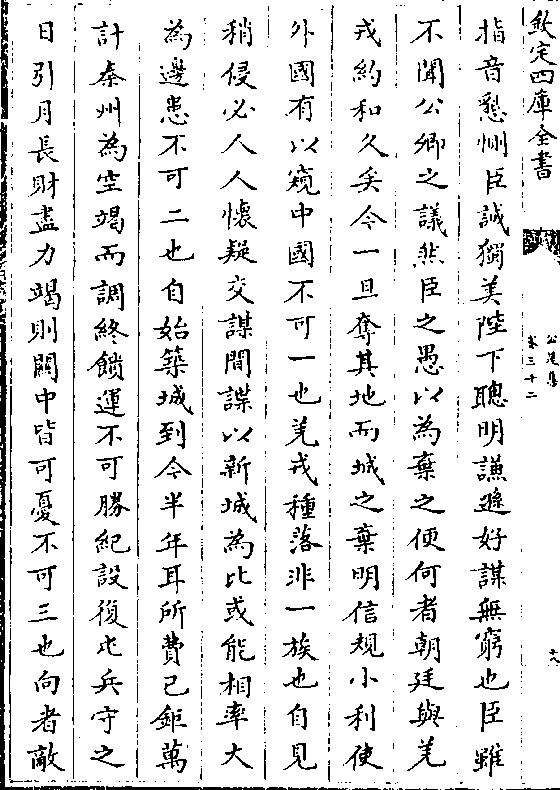 欽定四庫全書
公是集
卷三十二
指音懇惻臣誠獨美陛下聰明謙遜好謀無窮也臣雖
不聞公卿之議然臣之愚以為棄之便何者朝廷與羌
戎約和久矣今一旦奪其地而城之棄明信規小利使
外國有以窺中國不可一也羌戎種落非一族也自見
稍侵必人人懷疑交謀間諜以新城為比或能相率大
為邊患不可二也自始築城到今半年耳所費已鉅萬
計秦州為空竭而調終餽運不可勝紀設復屯兵守之
日引月長財盡力竭則關中皆可憂不可三也向者敵